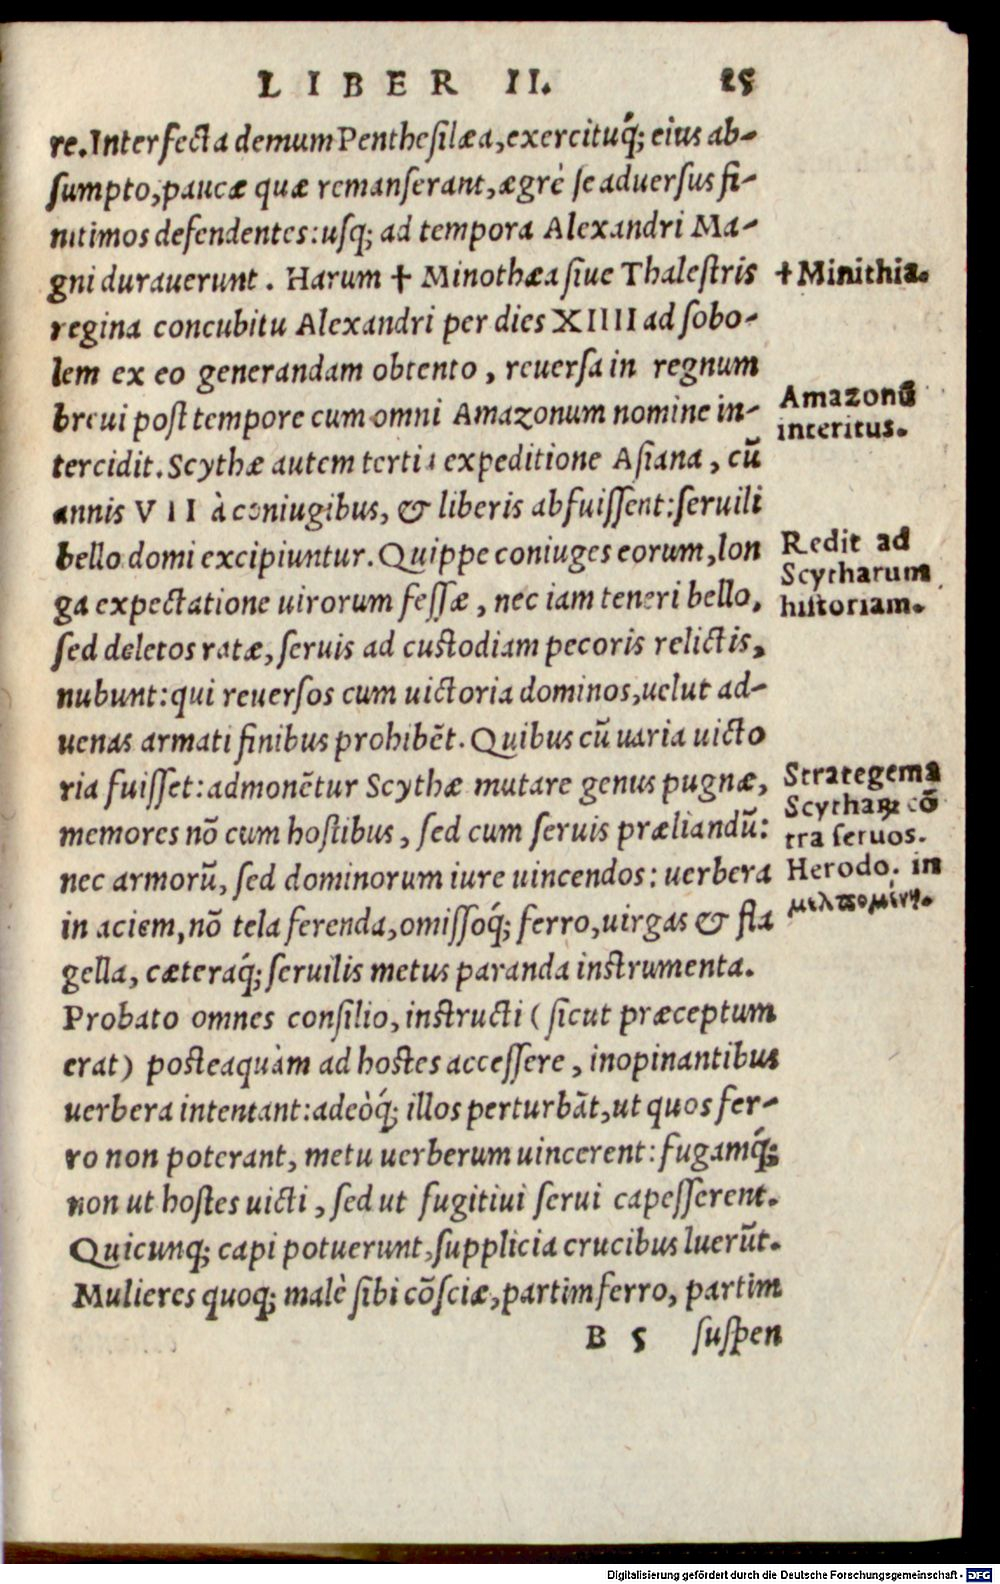 LIBER II. 25
re. Interfecta demum Penthesilæa, exercituq́; eius ab-
sumpto, paucæ quæ remanserant, ægrè se aduersus fi-
nitimos defendentes: usq; ad tempora Alexandri Ma-
gni durauerunt. Harum † Minothæa siue Thalestris
† Minithia.
regina concubitu Alexandri per dies XIIII ad sobo-
lem ex eo generandam obtento, reuersa in regnum
breui post tempore cum omni Amazonum nomine in-
Amazonũ
interitus.
tercidit. Scythæ autem tertia expeditione Asiana, cũ
annis VII à coniugibus, & liberis abfuissent: seruili
bello domi excipiuntur. Quippe coniuges eorum, lon
Redit ad
Scytharum
historiam.
ga expectatione uirorum fessæ, nec iam teneri bello,
sed deletos ratæ, seruis ad custodiam pecoris relictis,
nubunt: qui reuersos cum uictoria dominos, uelut ad-
uenas armati finibus prohibẽt. Quibus cũ uaria uicto
ria fuisset: admonẽtur Scythæ mutare genus pugnæ,
Strategema
Scythaꝝ cõ
tra seruos.
Herodo. in
μελπομένῃ.
memores nõ cum hostibus, sed cum seruis præliandũ:
nec armorũ, sed dominorum iure uincendos: uerbera
in aciem, nõ tela ferenda, omissoq́; ferro, uirgas & fla
gella, cæteraq́; seruilis metus paranda instrumenta.
Probato omnes consilio, instructi (sicut præceptum
erat) posteaquàm ad hostes accessere, inopinantibus
uerbera intentant: adeòq́; illos perturbãt, ut quos fer-
ro non poterant, metu uerberum uincerent: fugamq́;
non ut hostes uicti, sed ut fugitiui serui capesserent.
Quicunq; capi potuerunt, supplicia crucibus luerũt.
Mulieres quoq; malè sibi cõsciæ, partim ferro, partim
B 5 suspen
Digitalisierung gefördert durch die Deutsche Forschungsgemeinschaft - DFG